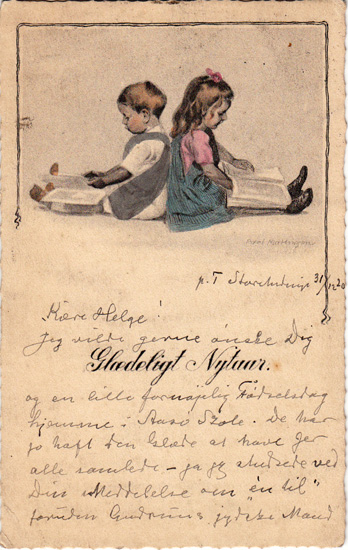 Axel Mathiesen
p. T. 31/12 20
Kære Helge!
Jeg vilde gerne ønske Dig
Glædeligt Nytaar.
og en lille fornøjlig Fødselsdag
hjemme i Skole. De har
jo haft den Glæde at have Jer
alle samlede – ja jeg studsede ved
Din Meddelelse om "én til"
foruden Gudruns jydske Mand